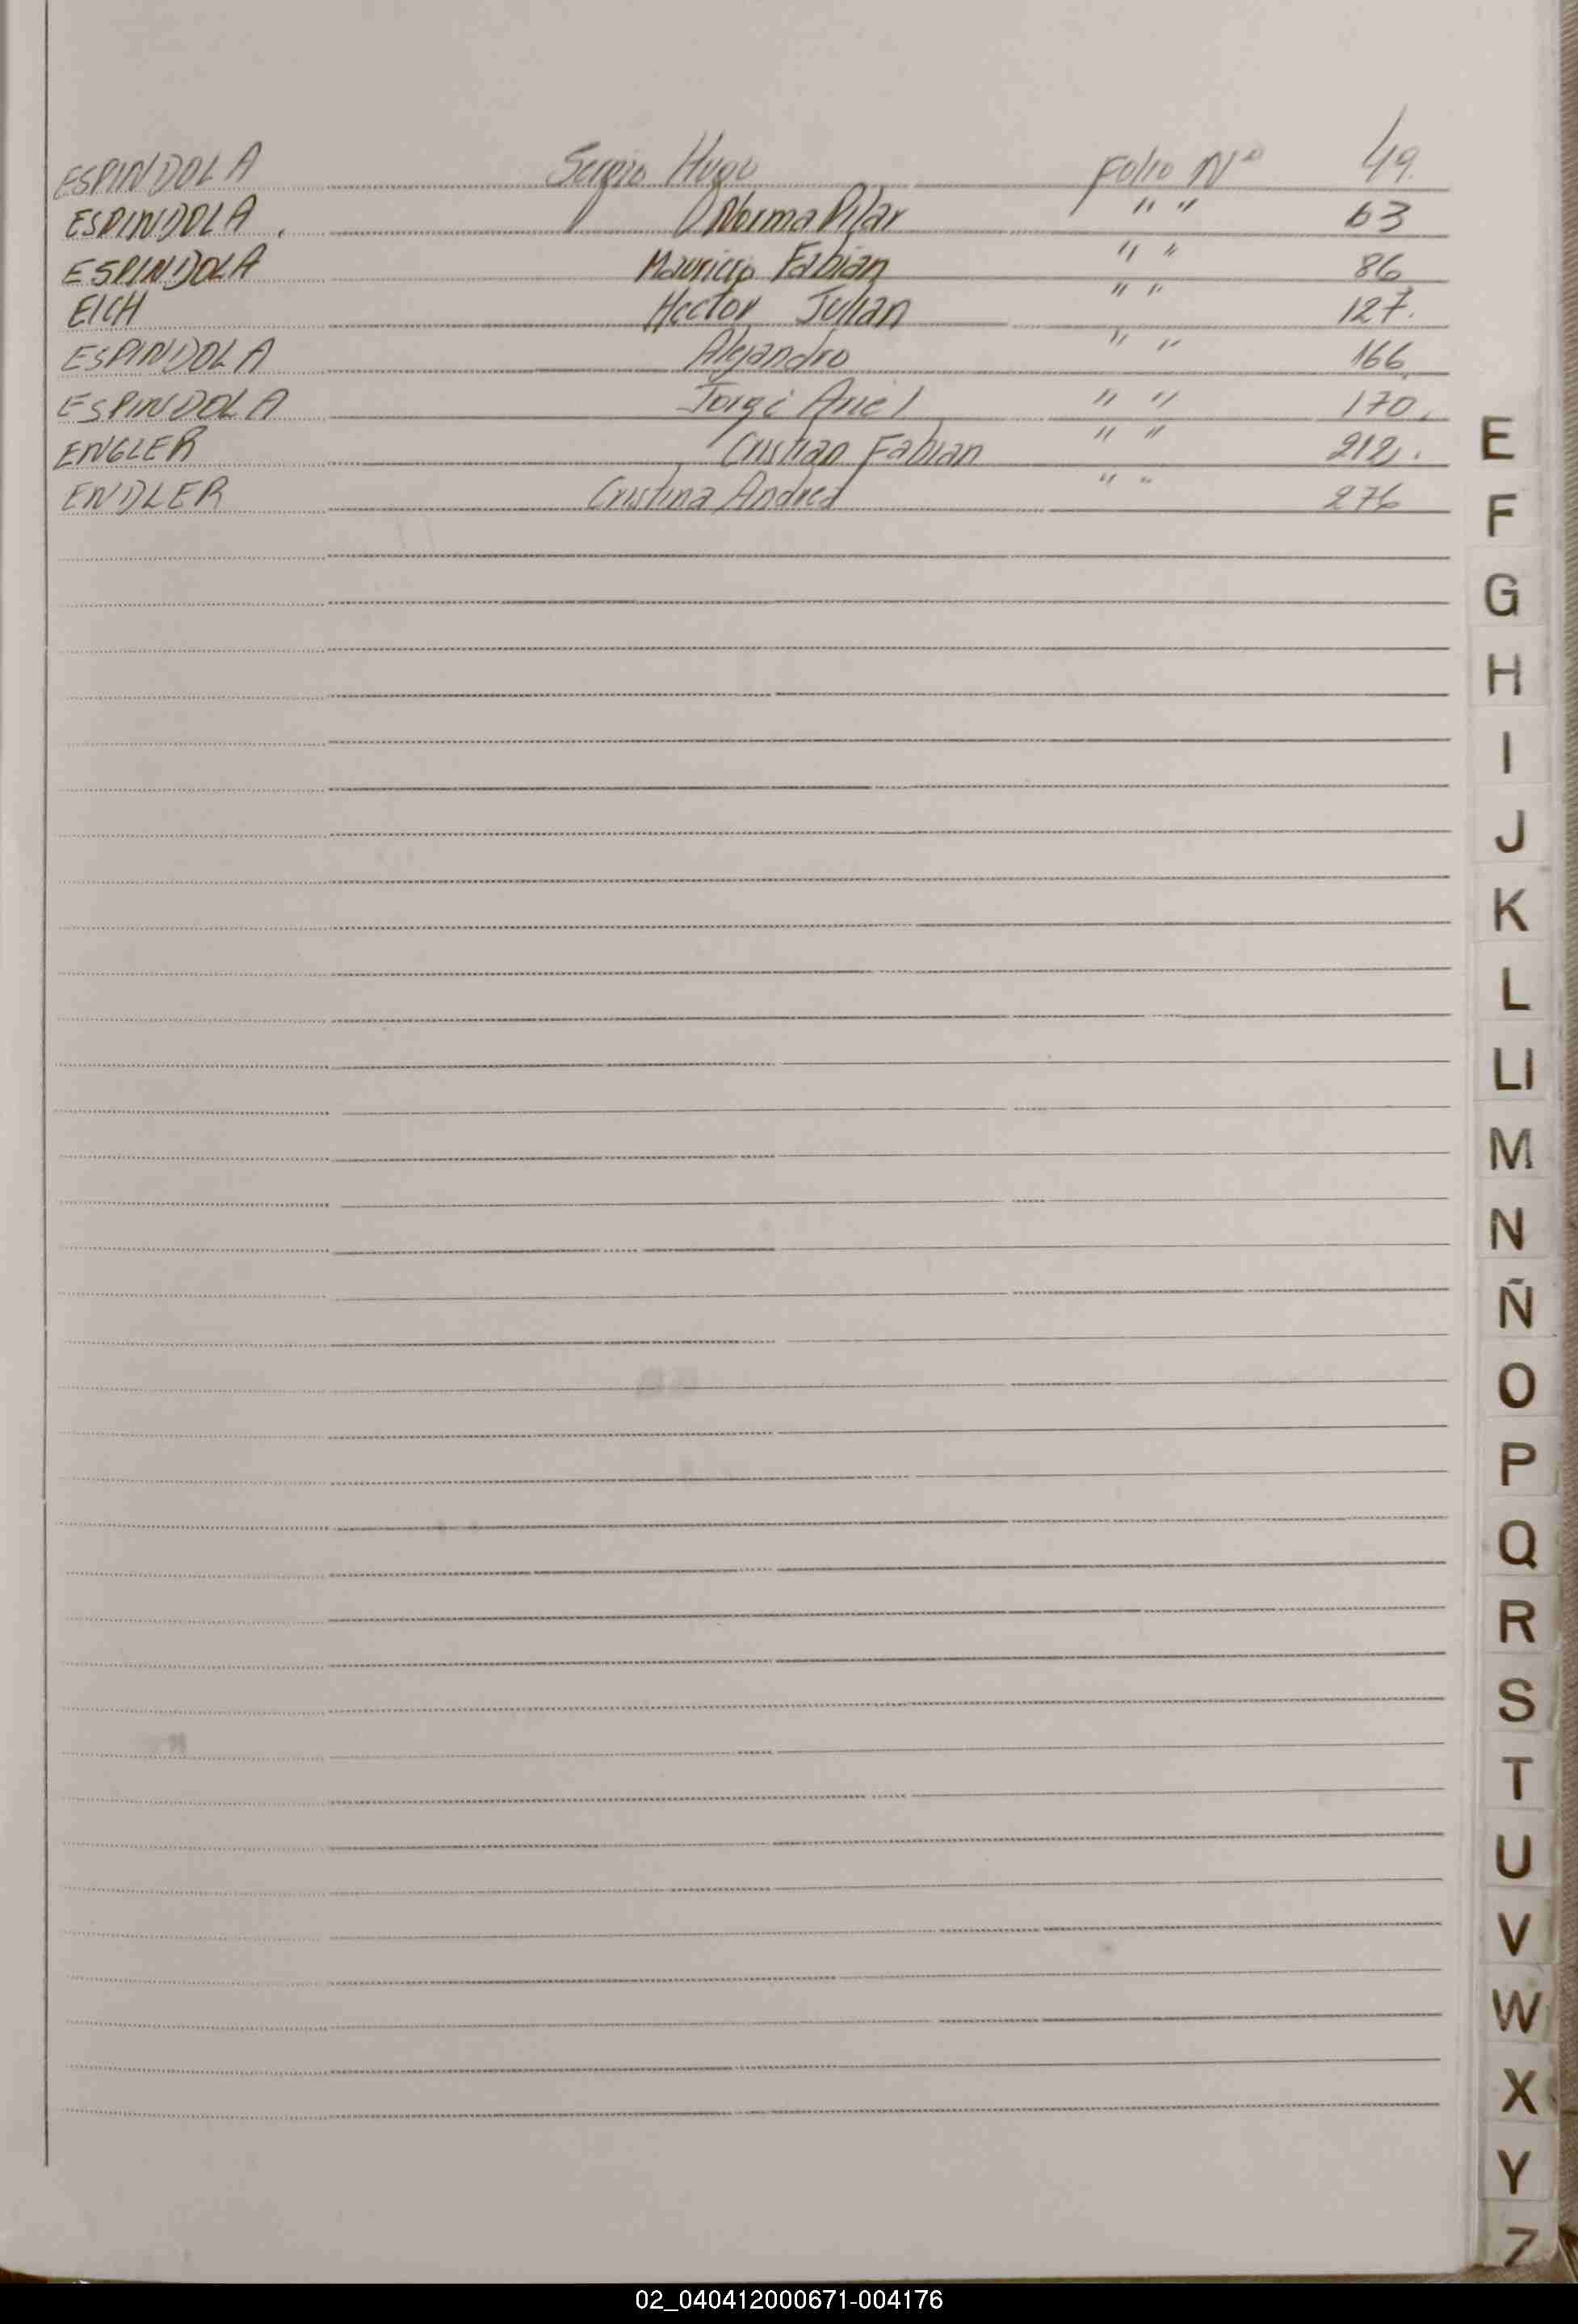 ESPINDOLA Sergio Hugo Folio Nº 49.
ESPINDOLA . Norma Pilar " " 63
ESPINDOLA Mauricio Fabian " " 86
EICH Hector Julian " " 127.
ESPINDOLA Alejandro " " 166
ESPINDOLA Jorge Ariel " " 170.
ENGLER Cristian Fabian " " 212.
ENDLER Cristina Andrea " " 276
E
F
G
H
I
J
K
L
Ll
M
N
Ñ
O
P
Q
R
S
T
U
V
W
X
Y
Z
02_040412000671-004176